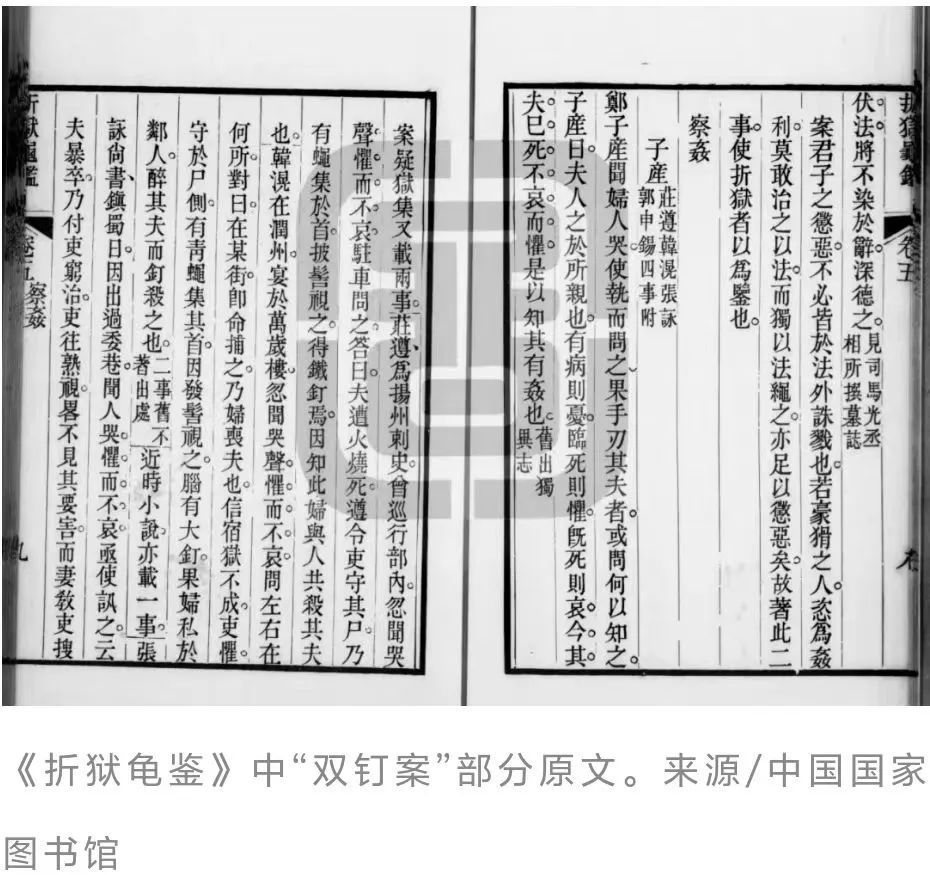 折獄龜鑑 卷五
伏。法將不染於辭。深德之。見司馬光丞
相所撰墓誌
案君子之懲惡。不必皆於法外誅戮也。若豪猾之人。恣爲姦
利。莫敢治之以法。而獨以法繩之。亦足以懲惡矣。故著此二
事。使折獄者以爲鑒也。
察姦
子產 莊遵韓滉張詠
郭申錫四事附
鄭子產聞婦人哭。使執而問之。果手刃其夫者。或問何以知之。
子產曰。夫人之於所親也。有病則憂。臨死則懼。旣死則哀。今其
夫已死。不哀而懼。是以知其有姦也。舊出獨
異志
案疑獄集又載兩事。莊遵爲揚州刺史。曾巡行部內。忽聞哭
聲。懼而不哀。駐車問之。答曰。夫遭火燒死。遵令吏守其尸。乃
有蠅集於首。披髻視之。得鐵釘焉。因知此婦與人共殺其夫
也。韓滉在潤州。宴於萬歲樓。忽聞哭聲。懼而不哀。問左右在
何所。對曰。在某街。卽命捕之。乃婦喪夫也。信宿獄不成。吏懼。
守於尸側。有青蠅集其首。因發髻視之。腦有大釘。果婦私於
鄰人。醉其夫而釘殺之也。二事舊不
著出處 近時小說亦載一事。張
詠尚書鎮蜀日。因出過委巷。聞人哭。懼而不哀。亟使訊之。云
夫暴卒。乃付吏窮治。吏往熟視。畧不見其要害。而妻敎吏搜
折獄龜鑑 卷五 察姦 九
《折狱龟鉴》中“双钉案”部分原文。来源/中国国家
图书馆